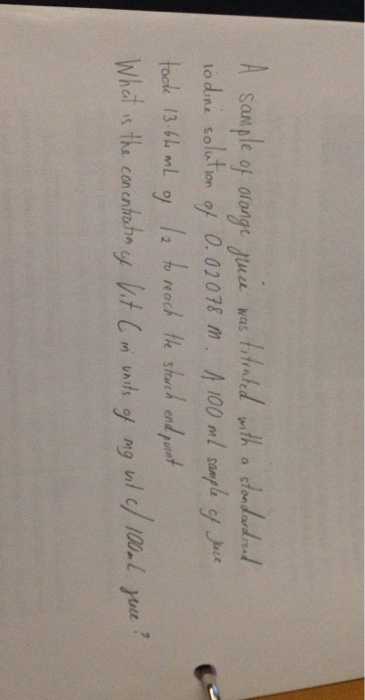 A sample of orange juice was titrated with a standardized
iodine solution of 0.02078 M. A 100 ml sample of juice
took 13.64 mL of I2 to reach the starch endpoint
What is the concentration of Vit C in units of mg vit c/100mL juice?